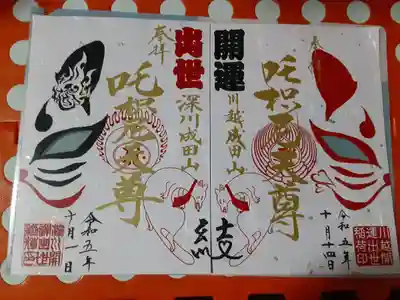 奉拝
開運
吒枳尼天尊
川越成田山
令和五年
十月十四日
川越開
運出世
稲荷印
奉拝
出世
吒枳尼天尊
深川成田山
令和五年
十月一日